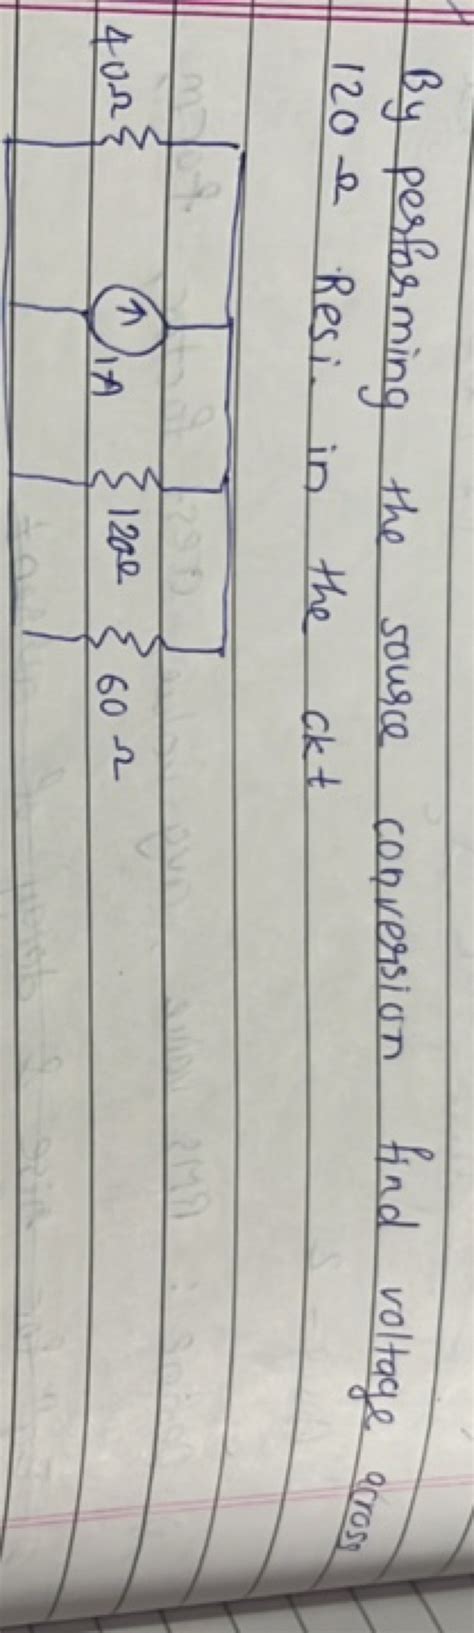 By performing the source conversion find voltage across
120 Ω Resi. in the ckt
40Ω
1A
120Ω
60 Ω